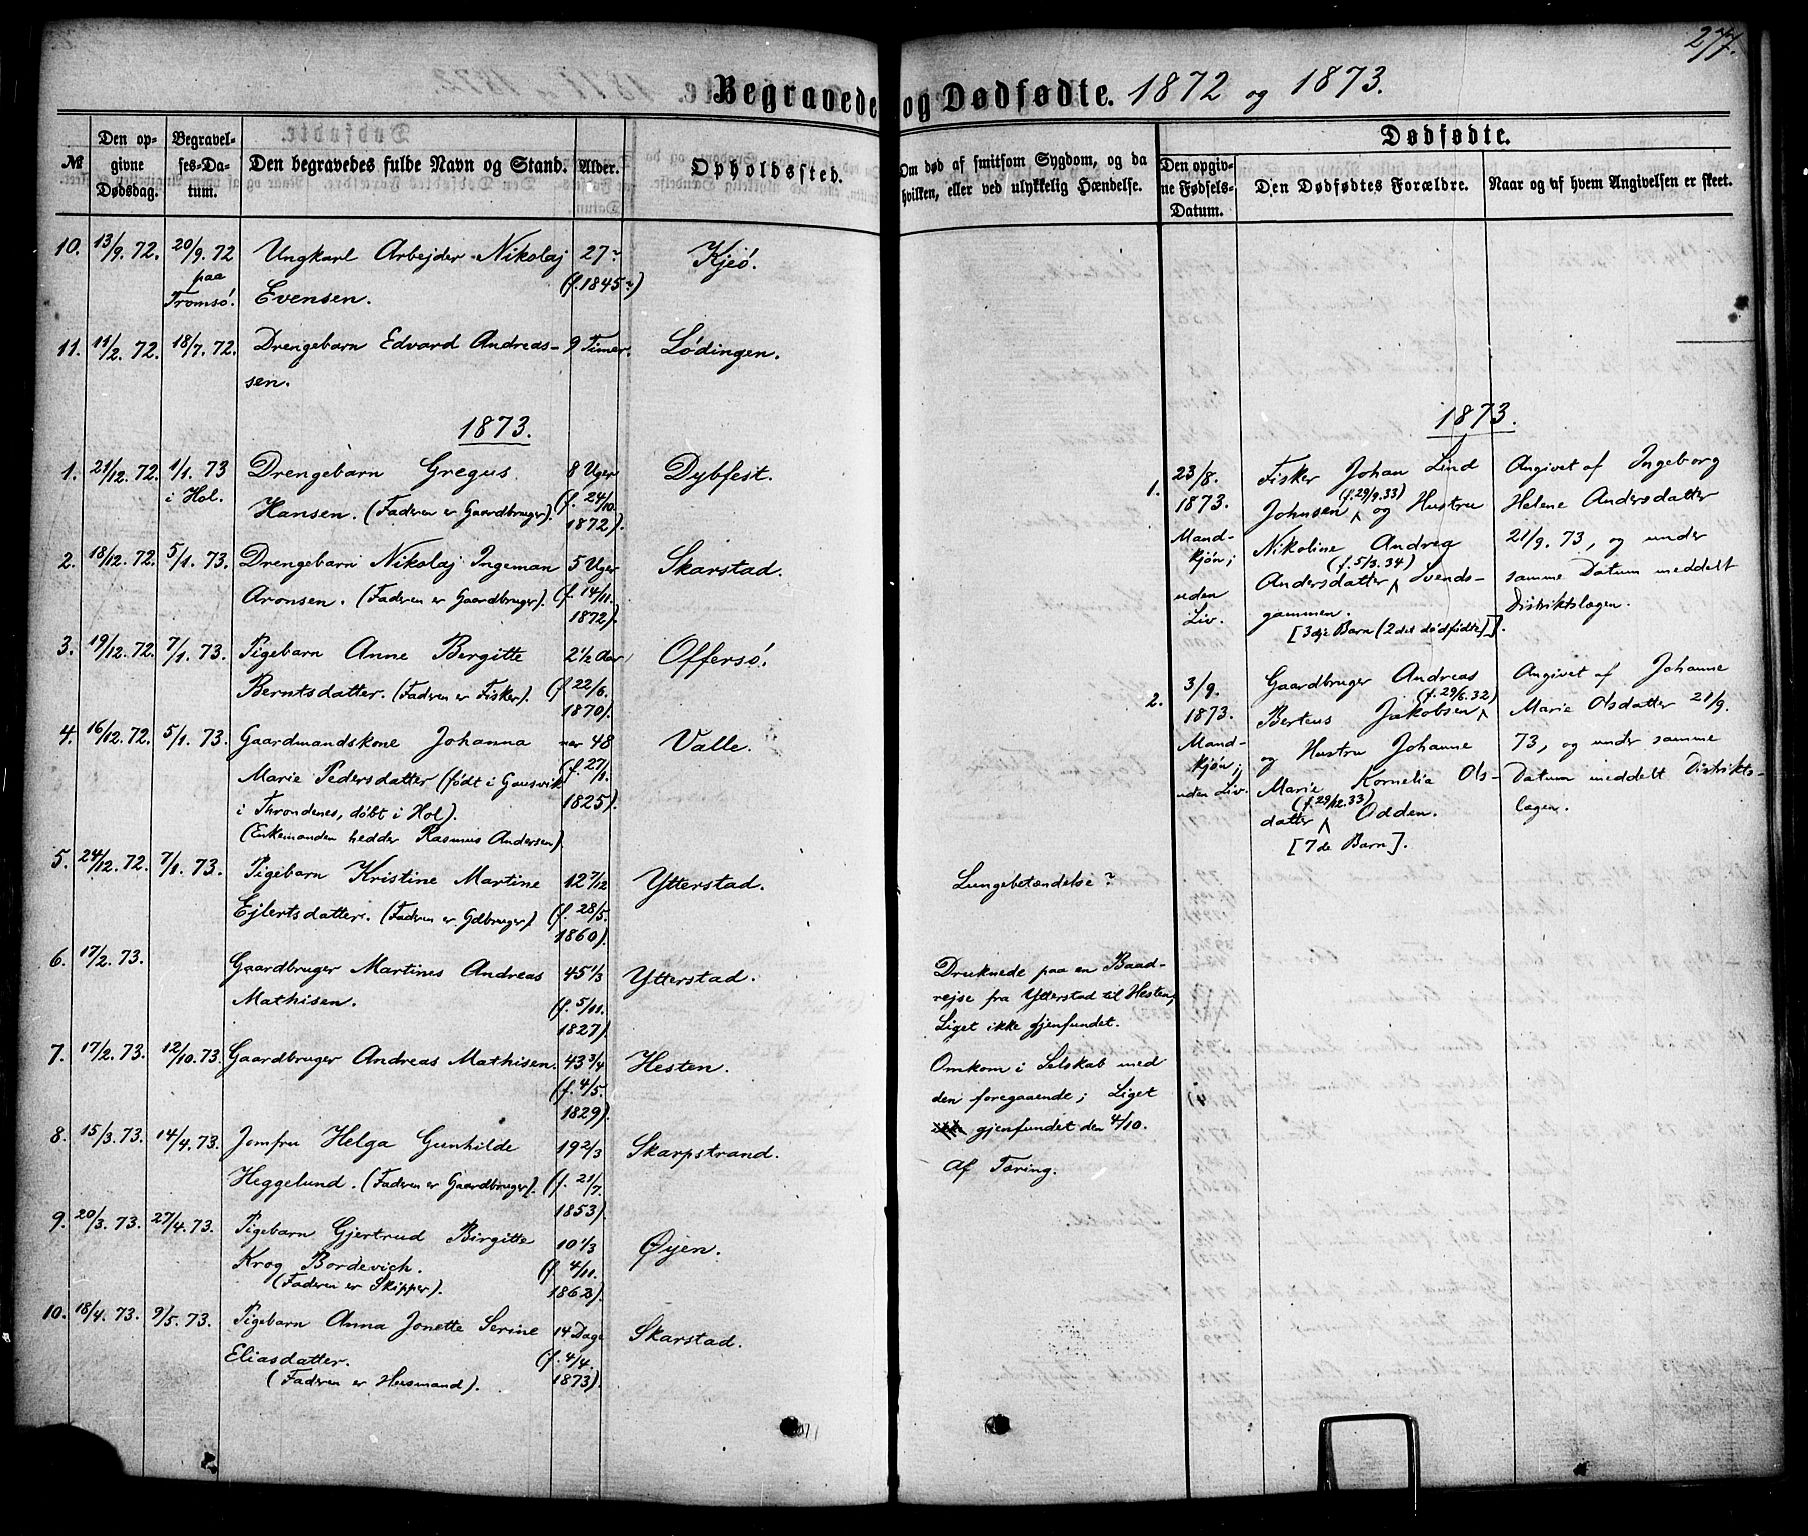 277.
Begravede og Dødfødte. 1872 og 1873.
Dødfødte.
No
Den opgivne Dødsdag.
Begravelses-Datum.
Den begravedes fulde Navn og Stand.
Alder.
Opholdssted.
Om død af smitsom Sygdom, og da hvilken, eller ved ulykkelig Hændelse.
Den opgivne Fødsels-Datum.
Den Dødfødtes Forældre.
Naar og af hvem Angivelsen er skeet.
10. 13/9. 72. 20/9. 72 Ungkarl Arbejder Nikolaj 27? Kjeø.
paa Tromsø. Evensen. (f. 1845?)
11. 11/2. 72. 18/7. 72. Drengebarn Edvard Andreas- 9 Timer. Lødingen.
sen.
1873.
1. 21/12. 72. 1/1. 73 Drengebarn Gregus 8 Uger Dybfest.
i Hol. Hansen. (Faderen er Gaardbruger). (f. 24/10. 1872).
2. 18/12. 72. 5/1. 73. Drengebarn Nikolaj Ingeman 5 Uger Skarstad.
Aronsen. (Faderen er Gaardbruger). (f. 14/11. 1872).
3. 19/12. 72. 7/1. 73. Pigebarn Anne Bergitte 2 1/2 Aar Offersø.
Berntsdatter. (Faderen er Fisker). (f. 22/6. 1870).
4. 16/12. 72. 5/1. 73. Gaardmandskone Johanna nær 48 Valle.
Marie Pedersdatter (født i Gausvik (f. 27/1.
i Throndenes, døbt i Hol). 1825).
(Enkemanden hedder Rasmus Andersen)
5. 24/12. 72. 7/1. 73. Pigebarn Kristine Martine 12 7/12 Ytterstad. Lungebetændelse?
Ejlertsdatter. (Faderen er Gdbruger). (f. 28/5. 1860).
6. 17/2. 73. Gaardbruger Martines Andreas 45 1/3 Ytterstad. Druknede paa en Baad-
Mathisen. (f. 5/11. 1827). rejse fra Ytterstad til Hesten,
Liget ikke gjenfundet.
7. 17/2. 73. 12/10. 73. Gaardbruger Andreas Mathisen. 43 3/4 Hesten. Omkom i Selskab med
(f. 4/5. 1829). den foregaaende; Liget
gjenfundet den 4/10.
8. 15/3. 73. 14/4. 73. Jomfru Helga Gunhilde 19 2/3 Skarpstrand. Af Tæring.
Heggelund. (Faderen er Gaardbruger). (f. 21/7. 1853).
9. 20/3. 73. 27/4. 73. Pigebarn Gjertrud Birgitte 10 1/3 Øyen.
Krog Bordevich. (f. 4/11.
(Faderen er Skipper). 1862).
10. 18/4. 73. 9/5. 73. Pigebarn Anna Jonette Serine 14 Dage Skarstad.
Eliasdatter. (f. 4/4.
(Faderen er Husmand). 1873).
1873.
1. 23/8. Fisker Johan Lind Angivet af Ingeborg
1873. Johnsen (f. 29/9. 33) og Hustru Helene Andersdatter
Mand- Nikoline Andrea 21/9. 73, og under
kjøn; Andersdatter (f. 5/3. 34) Svends- samme Datum meddelt
uden gammen. Distriktslægen.
Liv. [3dje Barn (2det dødfødte)].
2. 3/9. Gaardbruger Andreas Angivet af Johanne
1873. Berteus Jakobsen (f. 29/6. 32) Marie Olsdatter 21/9.
Mand- og Hustru Johanne 73, og under samme
kjøn; Marie Kornelia Ols- Datum meddelt Distrikts-
uden Liv. datter (f. 29/12. 33) Odden. lægen.
[7de Barn].